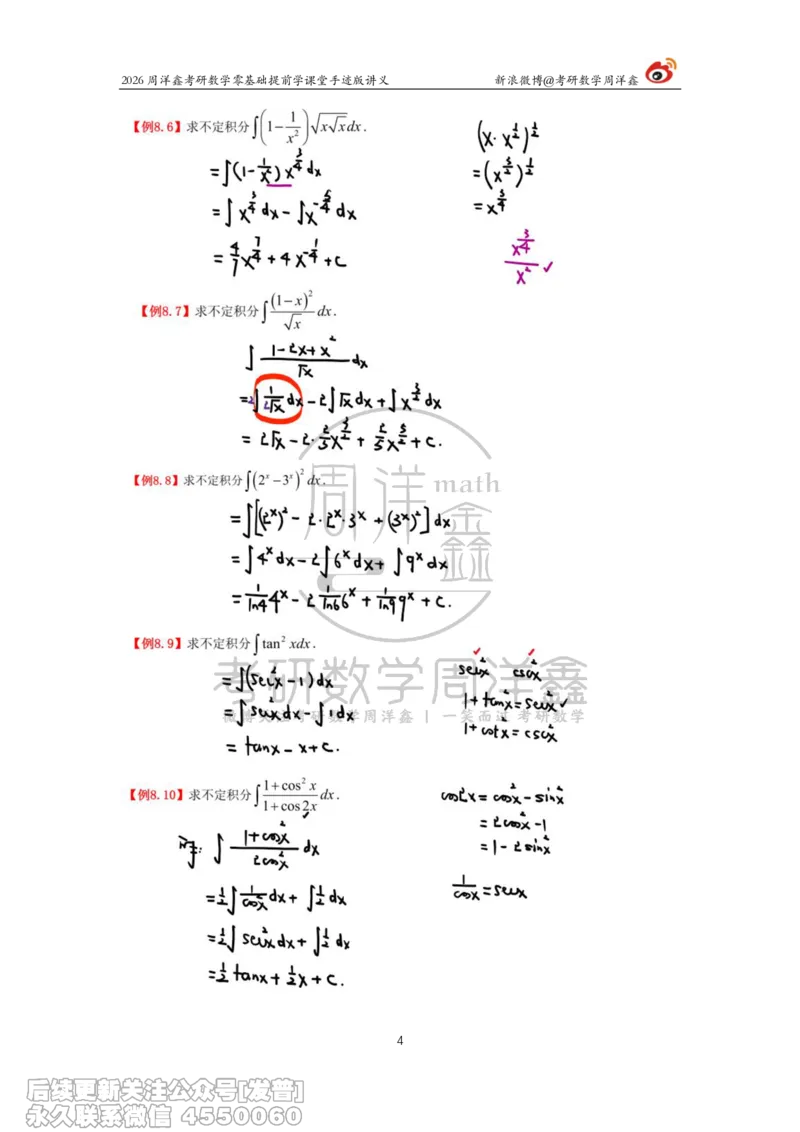 2026 周洋鑫考研数学零基础提前学课堂手迹版讲义 新浪微博@考研数学周洋鑫
【例8.6】求不定积分∫(1−1/x²)√(x√x)dx.
=∫(1−1/x²)x^(3/4)dx
=∫x^(3/4)dx−∫x^(−5/4)dx
=4/7 x^(7/4)+4x^(−1/4)+C
(x·x^(1/2))^(1/2)
=(x^(3/2))^(1/2)
=x^(3/4)
x^(3/4)/x² ✓
【例8.7】求不定积分∫(1−x)²/√x dx.
∫(1−2x+x²)/√x dx
=2∫1/(2√x)dx−2∫√x dx+∫x^(3/2)dx
=2√x−2·2/3 x^(3/2)+2/5 x^(5/2)+C.
【例8.8】求不定积分∫(2ˣ−3ˣ)²dx.
=∫[(2ˣ)²−2·2ˣ·3ˣ+(3ˣ)²]dx
=∫4ˣdx−2∫6ˣdx+∫9ˣdx
=1/ln4 4ˣ−2 1/ln6 6ˣ+1/ln9 9ˣ+C.
周洋鑫math
【例8.9】求不定积分∫tan²xdx.
=∫(sec²x−1)dx
=∫sec²xdx−∫1dx
=tanx−x+C.
sec²x csc²x
1+tan²x=sec²x ✓
1+cot²x=csc²x
考研数学周洋鑫
考研数学周洋鑫 | 一笑而过 考研数学
【例8.10】求不定积分∫(1+cos²x)/(1+cos2x)dx.
解:∫(1+cos²x)/(2cos²x)dx
=1/2∫1/cos²x dx+∫1/2 dx
=1/2∫sec²xdx+∫1/2 dx
=1/2 tanx+1/2 x+C.
cos2x=cos²x−sin²x
=2cos²x−1
=1−2sin²x
1/cosx=secx
4
后续更新关注公众号[发普]
永久联系微信 4550060